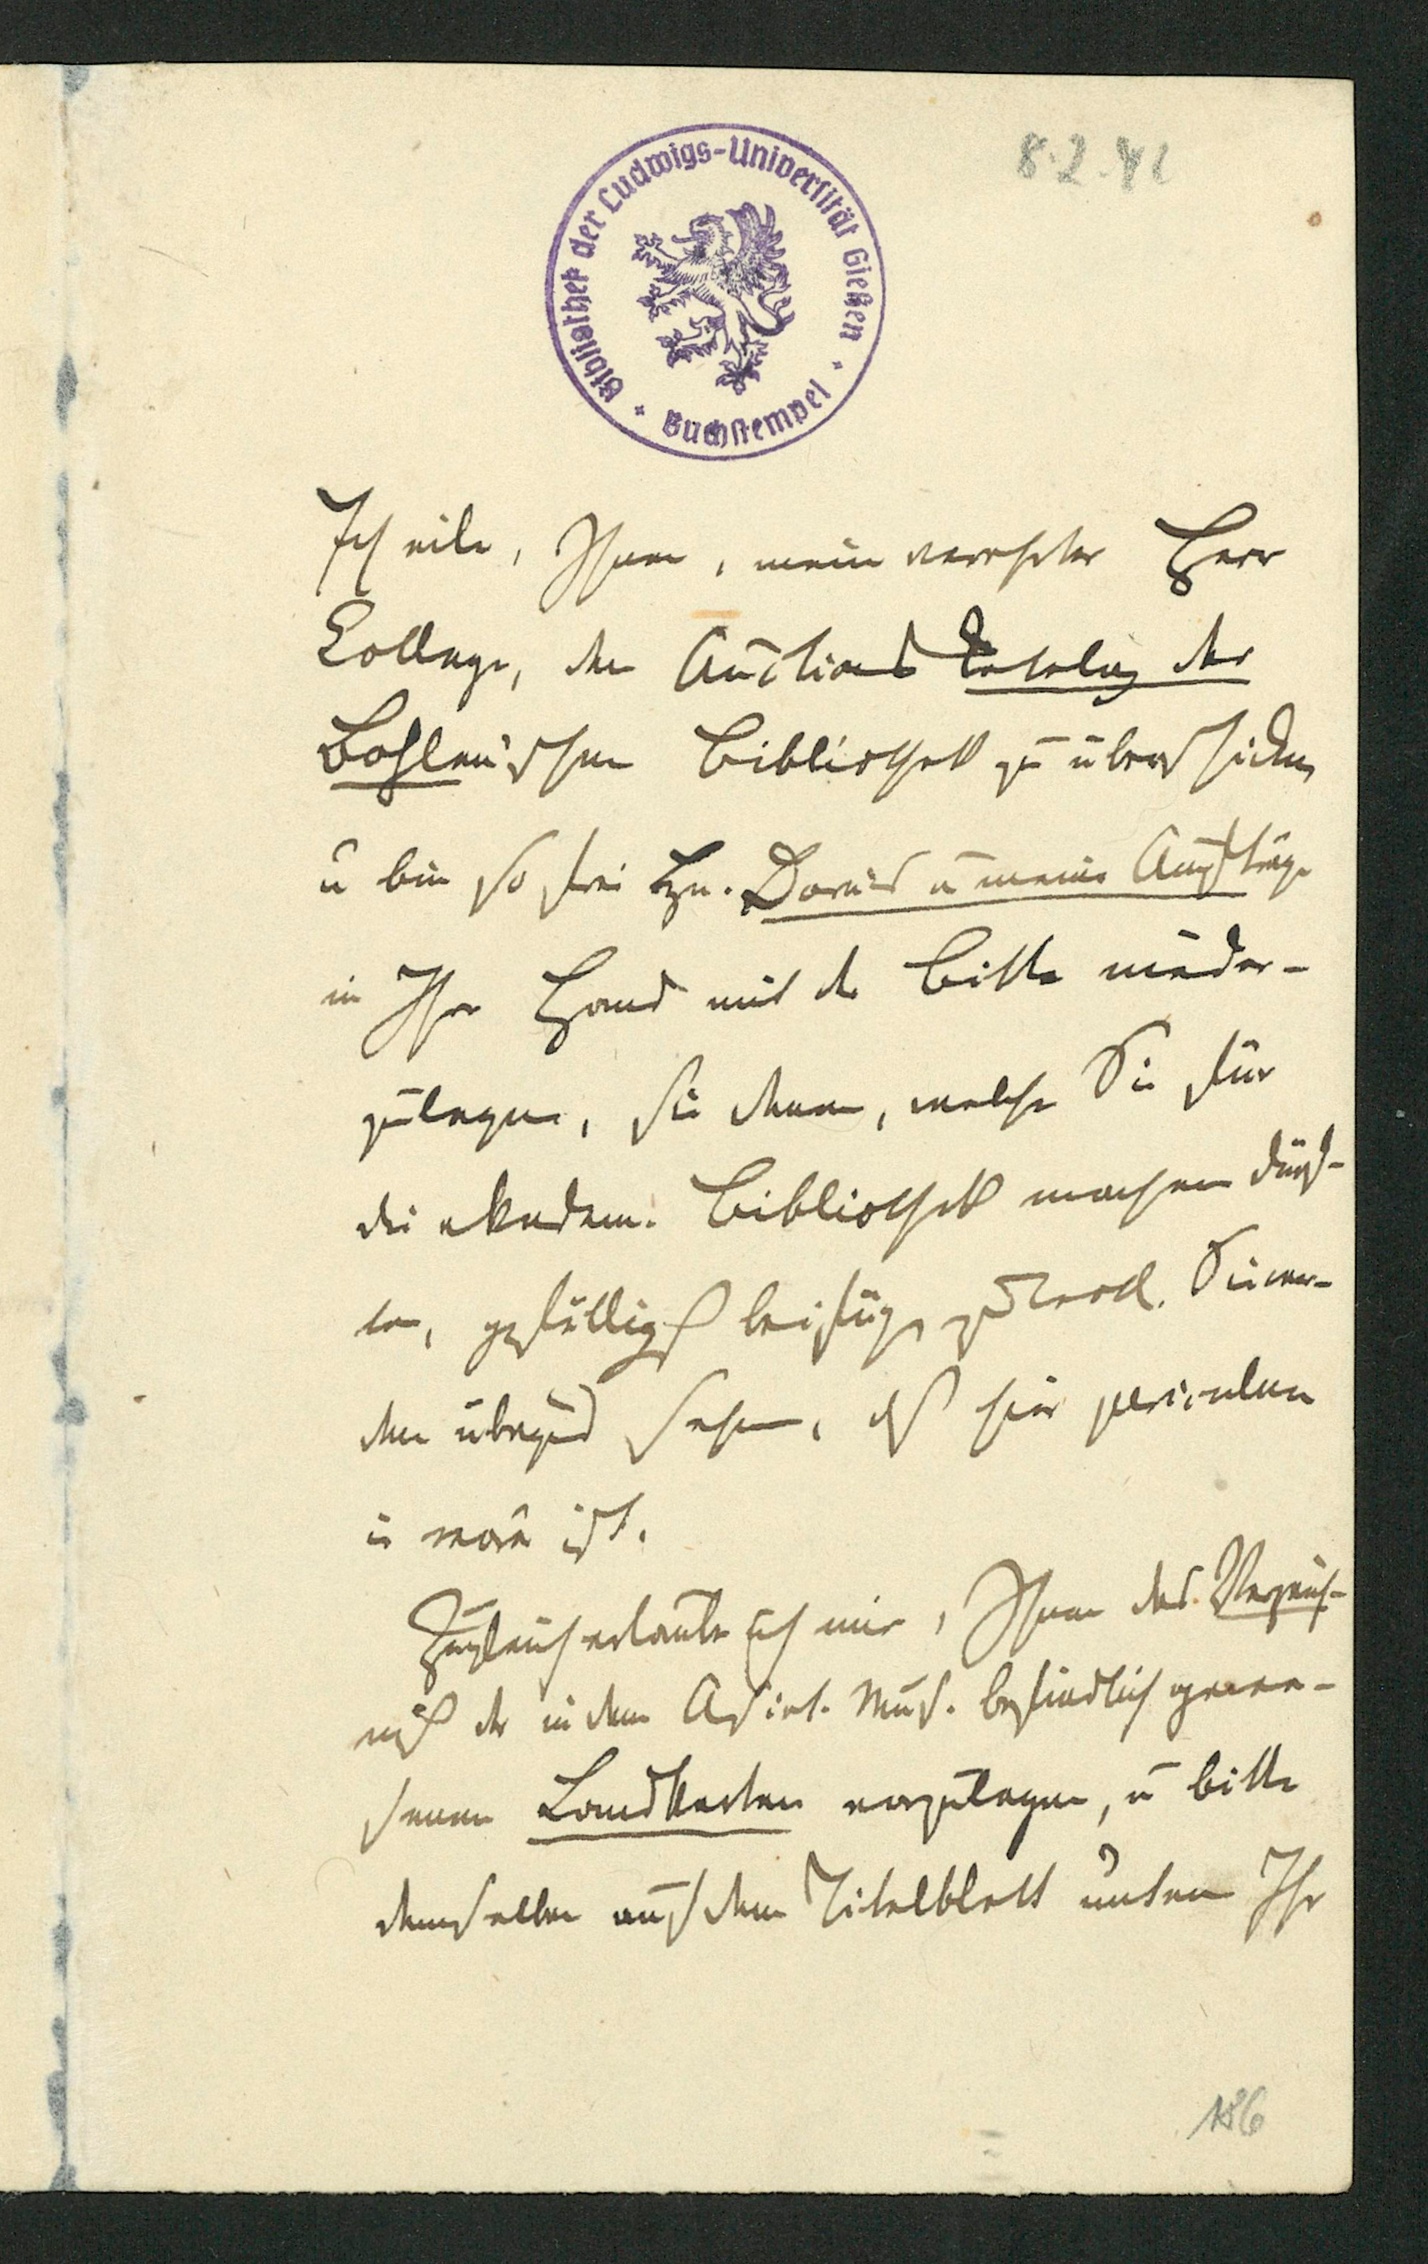 8.2.41
Bibliothek der Ludwigs-Universität Gießen
Buchstempel
Ich eile, Ihnen, mein verehrter Herr
College, den Auctions Catalog der
Bohlenschen Bibliothek zu überschicken
u bin so frei Hn. u meine Aufträge
in Ihre Hand mit der Bitte nieder-
zulegen, sie denen, welche Sie für
die akadem. Bibliothek machen dürf-
ten, gefälligst beifügen zu Sie wer-
den sehen, daß hier periculum
in mora ist.
Zugleich erlaube ich mir, Ihnen das Verzeich-
niß der in dem befindlich gewe-
senen Landkarten vorzulegen, u bitte
denselben auf dem Titelblatt unten Ihr
186